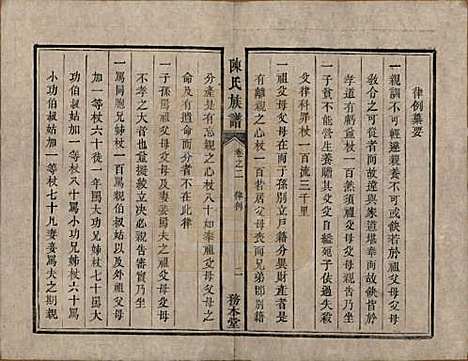 律例纂要
一親訓不可輕違親命不可故抗凡祖父母父母
教令合之可從而故違與家道堪奉而故缺皆於
孝道有虧重杖一百而須祖父母父母親告乃坐
一子貧不能營生養贍父母致父母自縊死子依過失殺
父母律科罪杖一百流三千里
一祖父母父母在子孫別立戶籍分異財產者是
有離親之心杖一百若居父母喪而兄弟即別籍
分產是有忘親之心杖八十如奉祖父母父母之
命及有遺命而分者不在此律
一子孫罵祖父母父母及妻妾罵夫之祖父母父母
不孝之大者也立決必親告乃坐
一罵同胞兄姊杖一百罵伯叔姑以及外祖父母
加一等杖六十徒一年罵大功兄姊杖七十罵大
功伯叔姑加一等杖八十罵小功兄姊杖六十罵
小功伯叔姑加一等杖七十凡妻妾罵夫之期親
陳氏族譜
卷之二
律例
一
務本堂